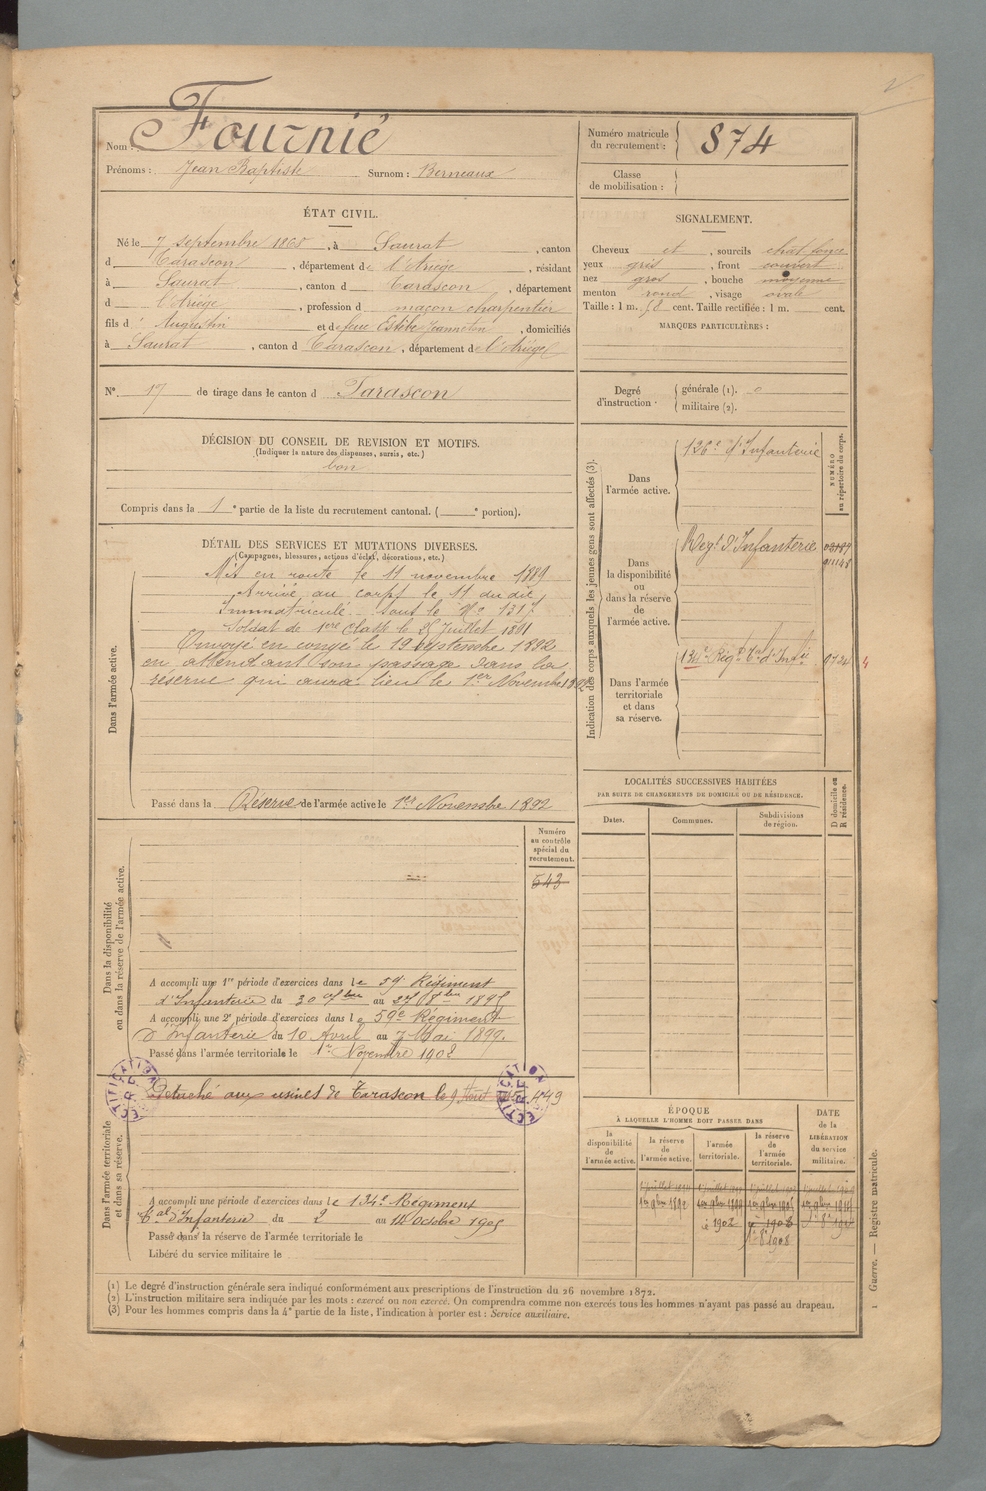 Nom : Fournié
Prénoms : Jean Baptiste Surnom : Berneaux
ÉTAT CIVIL.
Né le 7 septembre 1868, à Saurat, canton
d Tarascon, département de l'Ariège, résidant
à Saurat, canton d Tarascon, département
d l'Ariège, profession d maçon charpentier
fils d' Augustin et de feue Estèbe Jeanneton, domiciliés
à Saurat, canton d Tarascon, département de l'Ariège
N° 17 de tirage dans le canton d Tarascon
DÉCISION DU CONSEIL DE REVISION ET MOTIFS.
(Indiquer la nature des dispenses, sursis, etc.)
bon
Compris dans la 1e partie de la liste du recrutement cantonal. ( e portion).
DÉTAIL DES SERVICES ET MUTATIONS DIVERSES.
(Campagnes, blessures, actions d'éclat, décorations, etc.)
Dans l'armée active.
Mis en route le 11 novembre 1889
Arrivé au corps le 11 du dit,
Immatriculé sous le No
Soldat de 1ère Classe le 25 Juillet 1891
Envoyé en congé le 19 Septembre 1892
en attendant son passage dans la
réserve qui aura lieu le 1er Novembre 1892
Passé dans la Réserve de l'armée active le 1er Novembre 1892
Dans la disponibilité
ou dans la réserve de l'armée active.
Numéro
au contrôle
spécial du
recrutement.
543
A accompli une 1re période d'exercices dans le 59e Régiment
d'Infanterie du 30 7bre au 27 8bre 1895
A accompli une 2e période d'exercices dans le 59e Régiment
d'Infanterie du 10 Avril au 7 Mai 1899.
Passé dans l'armée territoriale le 1er Novembre 1902
Dans l'armée territoriale
et dans sa réserve.
RECTIFICATION
Détaché aux usines de Tarascon le 9 Août
RECTIFICATION
A accompli une période d'exercices dans le 134e Régiment
Tal d'Infanterie du 2 au Octobre 1905
Passé dans la réserve de l'armée territoriale le
Libéré du service militaire le
Numéro matricule
du recrutement : 874
Classe
de mobilisation :
SIGNALEMENT.
Cheveux et, sourcils chat. foncé
yeux gris, front couvert
nez gros, bouche moyenne
menton rond, visage ovale
Taille : 1 m. cent. Taille rectifiée : 1 m. cent.
MARQUES PARTICULIÈRES :
Degré
d'instruction
générale (1). 0
militaire (2).
Indication des corps auxquels les jeunes gens sont affectés (3).
NUMÉRO
au répertoire du corps.
Dans
l'armée active.
126e d'Infanterie
Dans
la disponibilité
ou
dans la réserve
de
l'armée active.
Regt d'Infanterie
Dans l'armée
territoriale
et dans
sa réserve.
134e Régt Tal d'Infie
LOCALITÉS SUCCESSIVES HABITÉES
PAR SUITE DE CHANGEMENTS DE DOMICILE OU DE RÉSIDENCE.
D domicile ou
R résidence.
Dates.
Communes.
Subdivisions
de région.
ÉPOQUE
À LAQUELLE L'HOMME DOIT PASSER DANS
DATE
de la
LIBÉRATION
du service
militaire.
la
disponibilité
de
l'armée active.
la réserve
de
l'armée active.
l'armée
territoriale.
la réserve
de
l'armée
territoriale.
1er 9bre 1892
1902
1908
(1) Le degré d'instruction générale sera indiqué conformément aux prescriptions de l'instruction du 26 novembre 1872.
(2) L'instruction militaire sera indiquée par les mots : exercé ou non exercé. On comprendra comme non exercés tous les hommes n'ayant pas passé au drapeau.
(3) Pour les hommes compris dans la 4e partie de la liste, l'indication à porter est : Service auxiliaire.
1 Guerre. — Registre matricule.